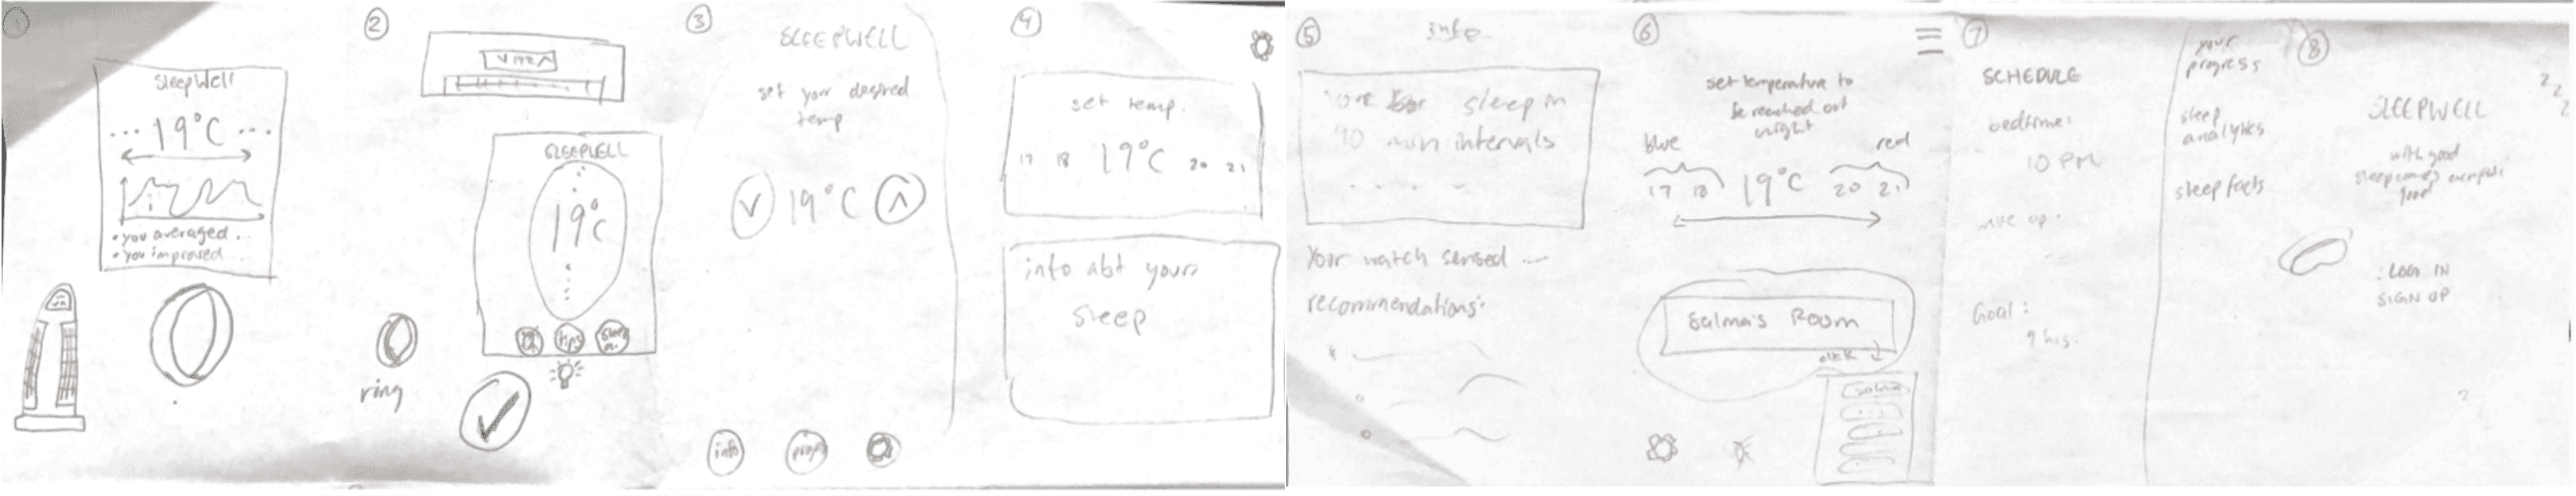 1
SleepWell
... 19°C ...
• you averaged ..
• you improved
2
19°C
SLEEPWELL
19°C
tips
ring
3
SLEEPWELL
set your desired
temp
19°C
info
4
set temp.
17 18 19°C 20 21
info abt your
sleep
5
info
sleep in
90 min intervals
Your watch sensed ...
recommendations:
6
set temperature to
be reached at
night
blue
red
17 18 19°C 20 21
Salma's Room
click
Salma
7
SCHEDULE
bedtime:
10 PM
Goal:
9 hrs.
your
progress
sleep
analytics
sleep facts
8
z
z
z
SLEEPWELL
with good
sleep comes
LOG IN
SIGN UP